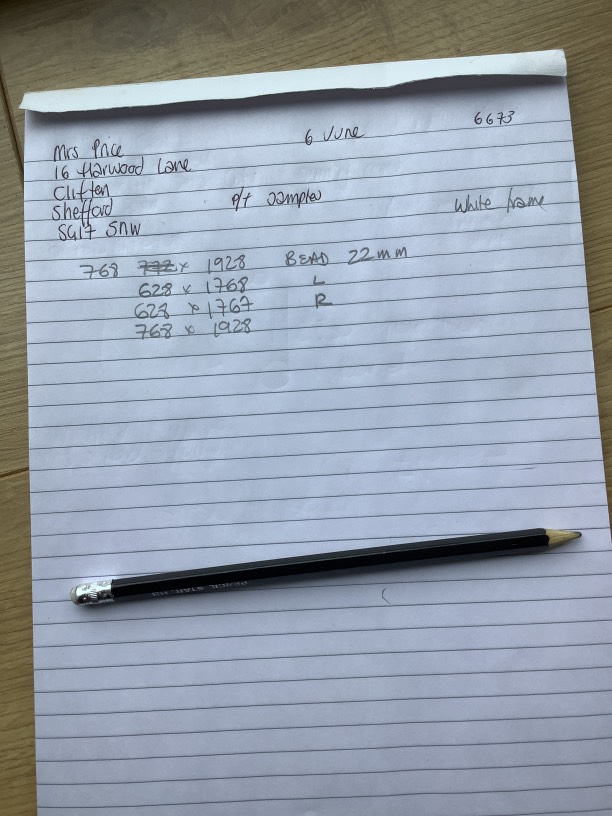 6 June
6673
Mrs Price
16 Harwood Lane
Clifton
Shefford
SG17 5NW
p/t samples
White frame
768 772 x 1928 BEAD 22mm
628 x 1768 L
628 x 1767 R
768 x 1928
PENCIL STAR